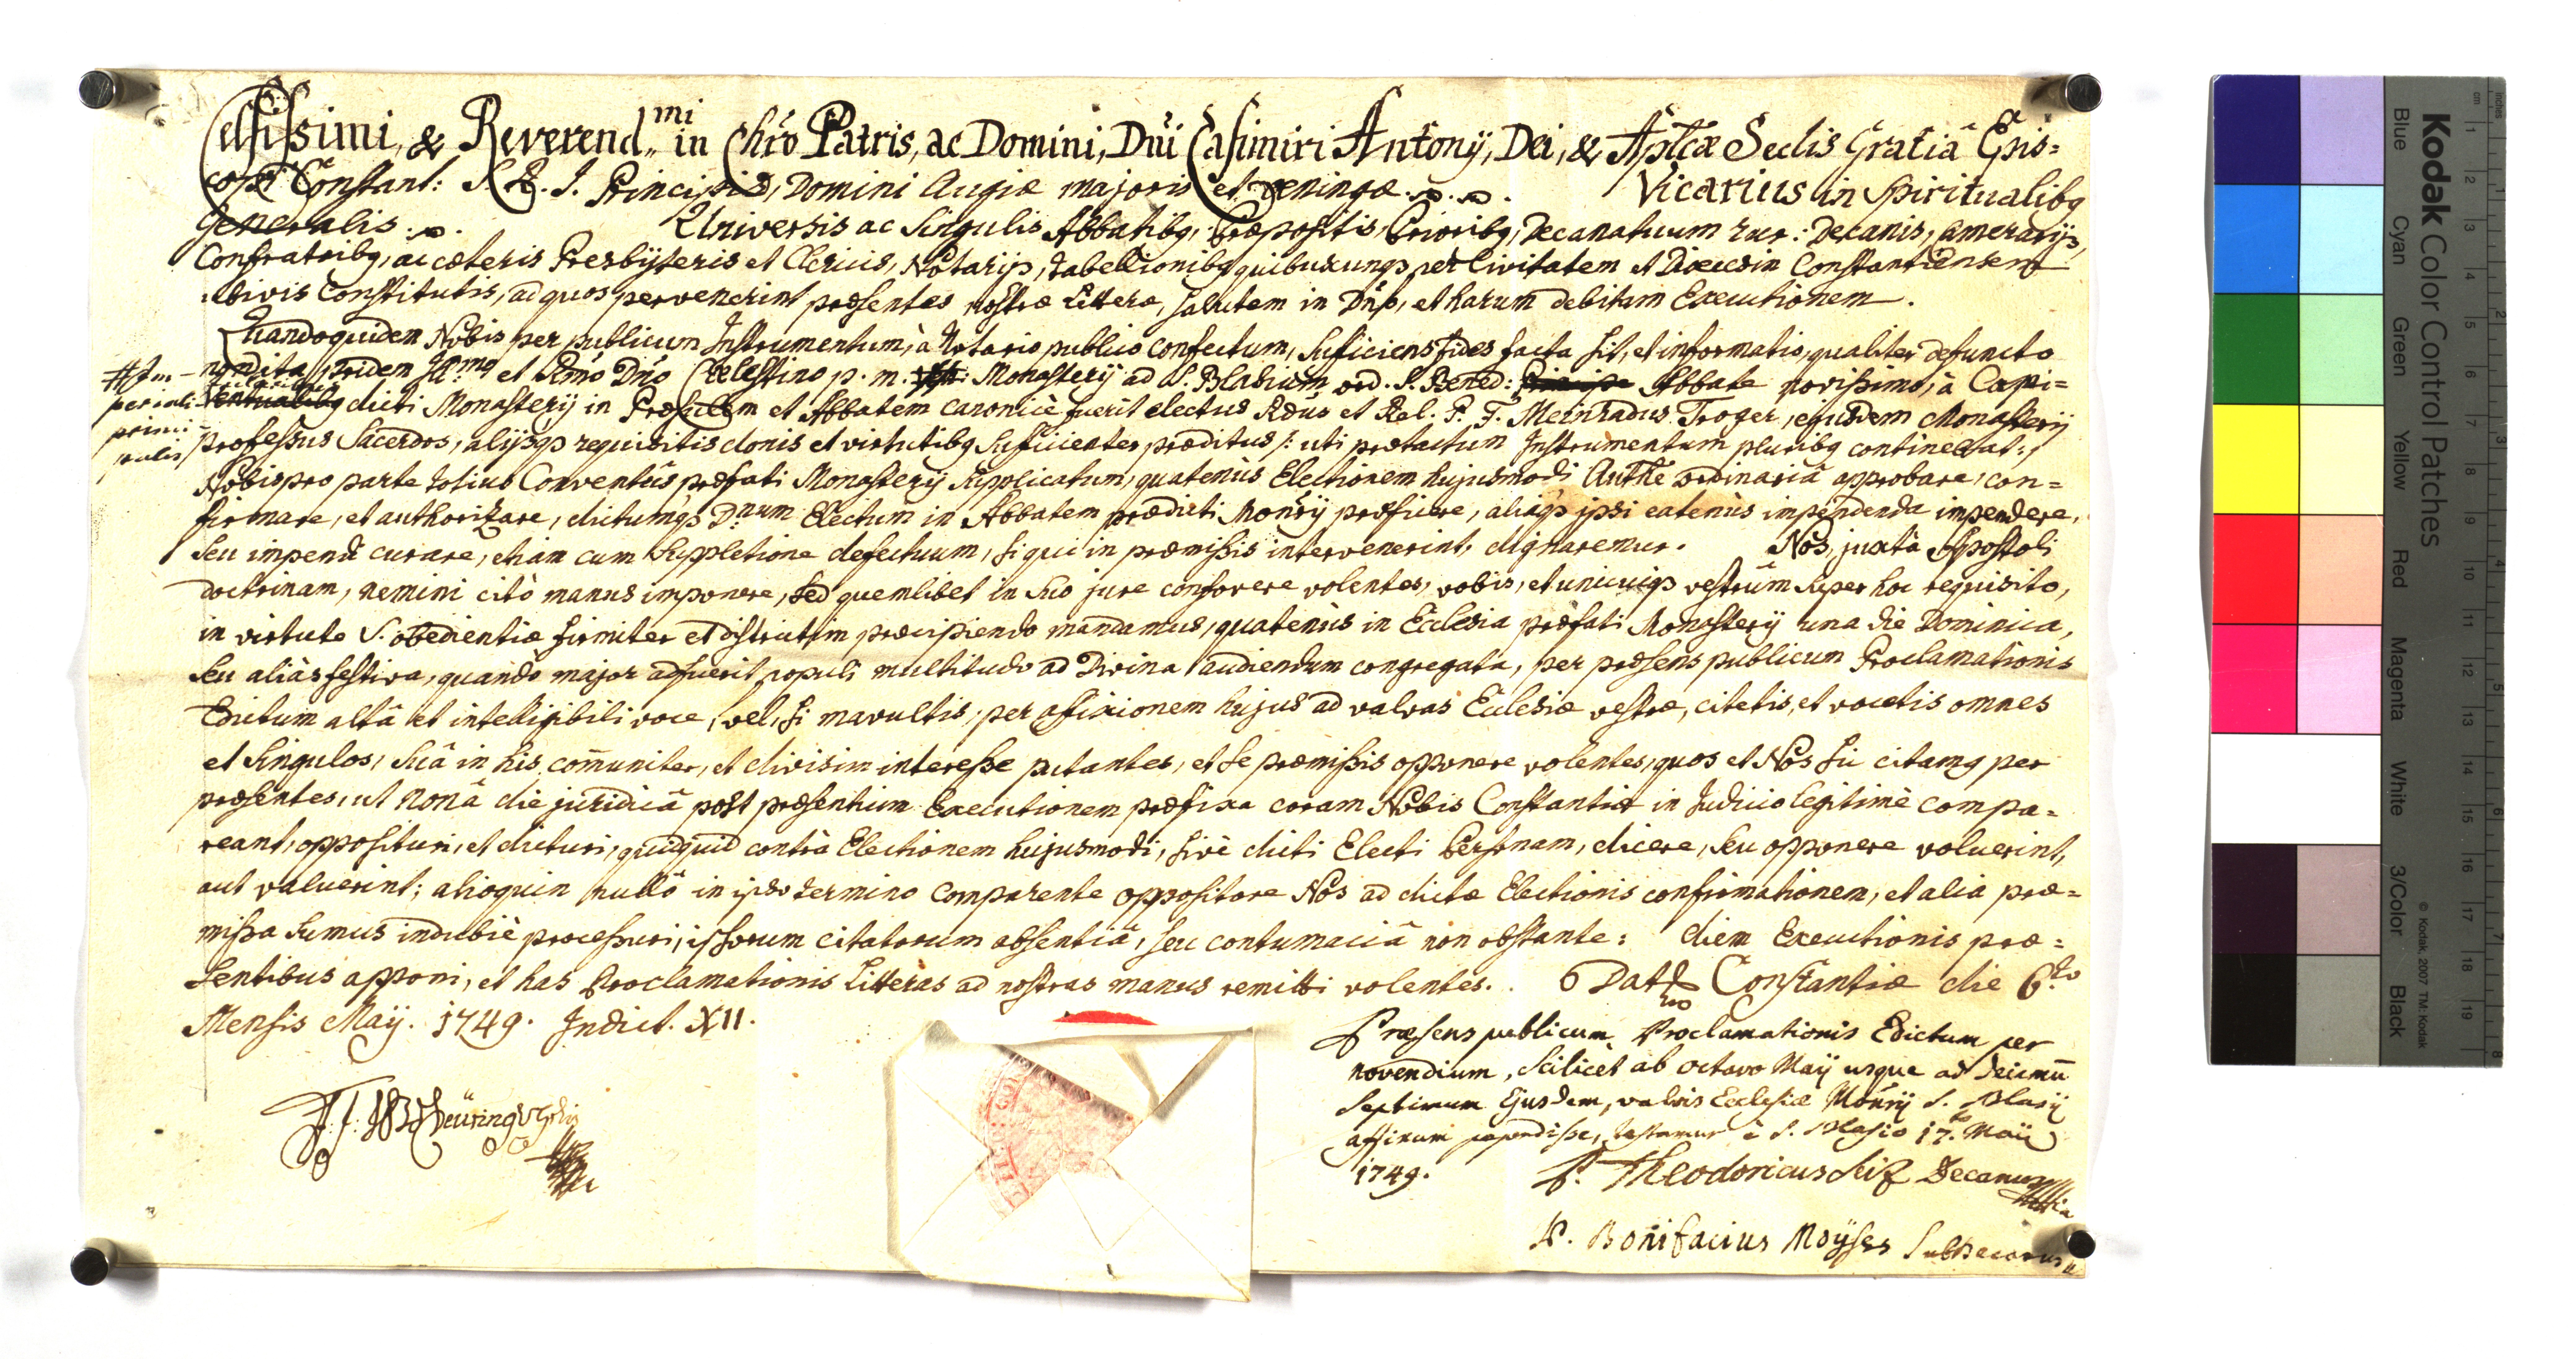 Celsissimi, & Reverend.mi in Chrō Patris, ac Domini, Dn̄i Casimiri Antonÿ, Dei, & Aplcæ Sedis Gratiâ Epis=
copi Constant: S. R. I. Principis, Domini Augiæ majoris et Oeningæ. Vicarius in Spiritualibq
Generalis. Universis ac Singulis Abbatibq, Præpositis, Prioribq, Decanatuum rur: Decanis, Camerarijs,
Confratribq, ac cæteris Presbÿteris et Clericis, Notarijs, Tabellionibq quibuscunq per Civitatem et Diœcesin Constantiensem
ubivis Constitutis, ad quos pervenerint præsentes nostræ Litteræ, Salutem in Dn̄o, et harum debitam Executionem.
Quandoquidem Nobis per publicum Instrumentum, à Notario publico confectum, sufficiens fides facta sit, et informatio, qualiter defuncto
pridem et Rmō Dn̄o Cœlestino p. m. Monasterÿ ad S. Blasium ord. S. Bened: Abbate novissimo, à Capi=
dicti Monasterÿ in Præsulem et Abbatem canonicè fuerit electus Rdus et Rel. P. F. Meinradus Troger, ejusdem Monasterÿ
professus Sacerdos, alÿsq requisitis donis et virtutibq sufficienter præditus /: uti prætactum Instrumentum pluribq continebat :/
Nobis pro parte totius Conventûs præfati Monasterÿ supplicatum, quatenùs Electionem hujusmodi Authe ordinariâ approbare, con=
firmare, et authorizare, dictumq D.num Electum in Abbatem prædicti Monrÿ præficere, aliaq ipsi eatenùs impendenda impendere,
seu impendi curare, etiam cum suppletione defectuum, si qui in præmissis intervenerint, dignaremur. Nos, juxta Apostoli
doctrinam, nemini citò manus imponere, sed quemlibet in suo jure confovere volentes, vobis, et unicuiq vestrûm super hoc requisito,
in virtute S. obedientiæ firmiter et districtim præcipiendo mandamus, quatenùs in Ecclesia præfati Monasterÿ una die Dominica,
seu aliàs festiva, quando major adfuerit populi multitudo ad Divina audiendum congregata, per præsens publicum Proclamationis
Edictum altâ et intelligibili voce, vel, si mavultis, per affixionem hujus ad valvas Ecclesiæ vestræ, citetis, et vocetis omnes
et singulos, suâ in his com̄uniter, et divisim interesse putantes, et se præmissis opponere volentes, quos et Nos sic citamq per
præsentes, ut nonâ die juridicâ post præsentium Executionem præfixa coram Nobis Constantiæ in Judicio legitimè compa=
reant, opposituri, et dicturi, quidquid contrà Electionem hujusmodi, sivè dicti Electi Personam, dicere, seu opponere voluerint,
aut valuerint; alioquin nullô in ipso termino comparente oppositore Nos ad dictæ Electionis confirmationem, et alia præ=
missa sumus indubiè processuri, ipsorum citatorum absentiâ, seu contumaciâ non obstante: diem Executionis præ=
sentibus apponi, et has Proclamationis Litteras ad nostras manus remitti volentes. Dat Constantiæ die 6.to
Mensis Maÿ. 1749. Indict. XII.
Præsens publicum Proclamationis Edictum per
novendium, scilicet ab octavo Maÿ usque ad decimū
septimum Ejusdem, valvis Ecclesiæ Monrÿ S. Blasÿ
affixum pependisse, testamur è S. Blasio 17. Maÿ
1749. P. Theodoricus Decanus
P. Bonifacius Moÿses Subdecanus
Kodak Color Control Patches
Blue Cyan Green Yellow Red Magenta White 3/Color Black
© Kodak, 2007 TM: Kodak
cm 1 2 3 4 5 6 7 8 9 10 11 12 13 14 15 16 17 18 19
inches 1 2 3 4 5 6 7 8